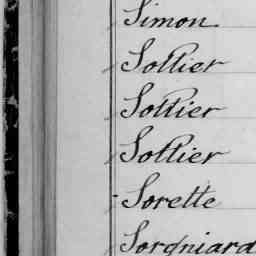 Simon
Sollier
Sollier
Sollier
Sorette
Sorgniard